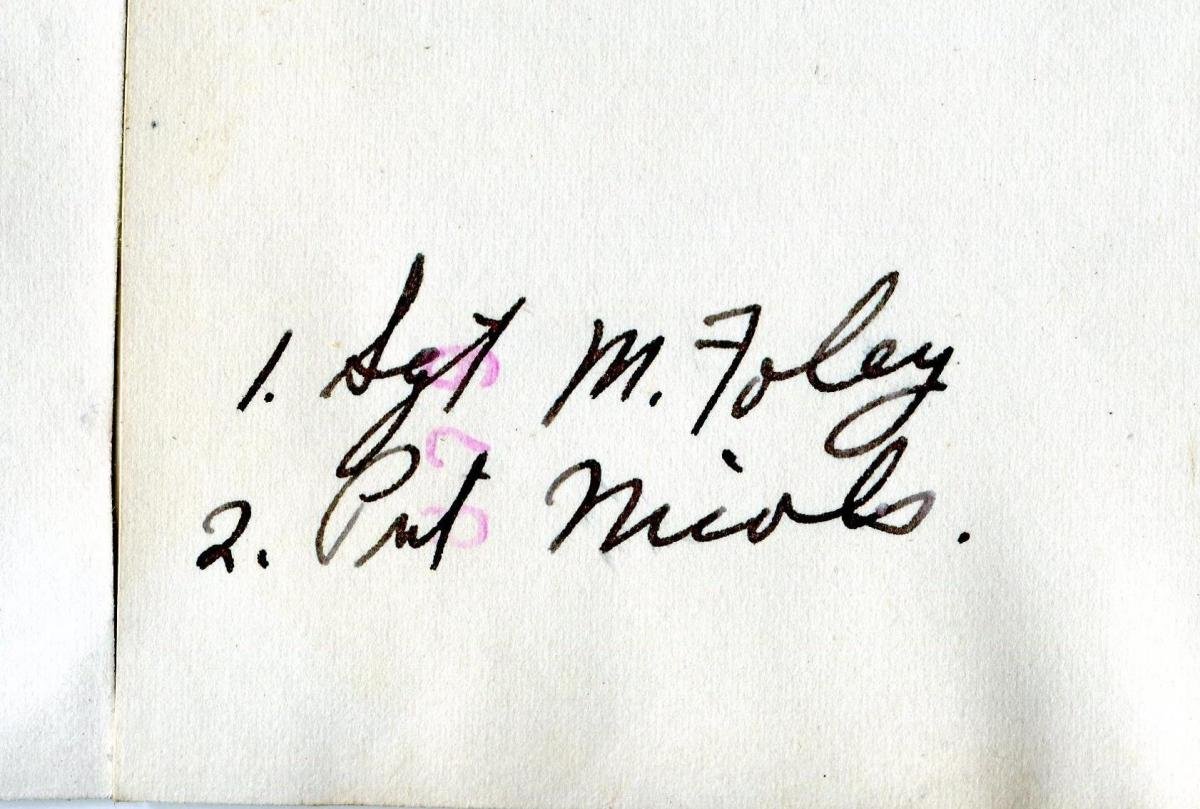 1. Sgt M. Foley
2. Pvt Nicols.